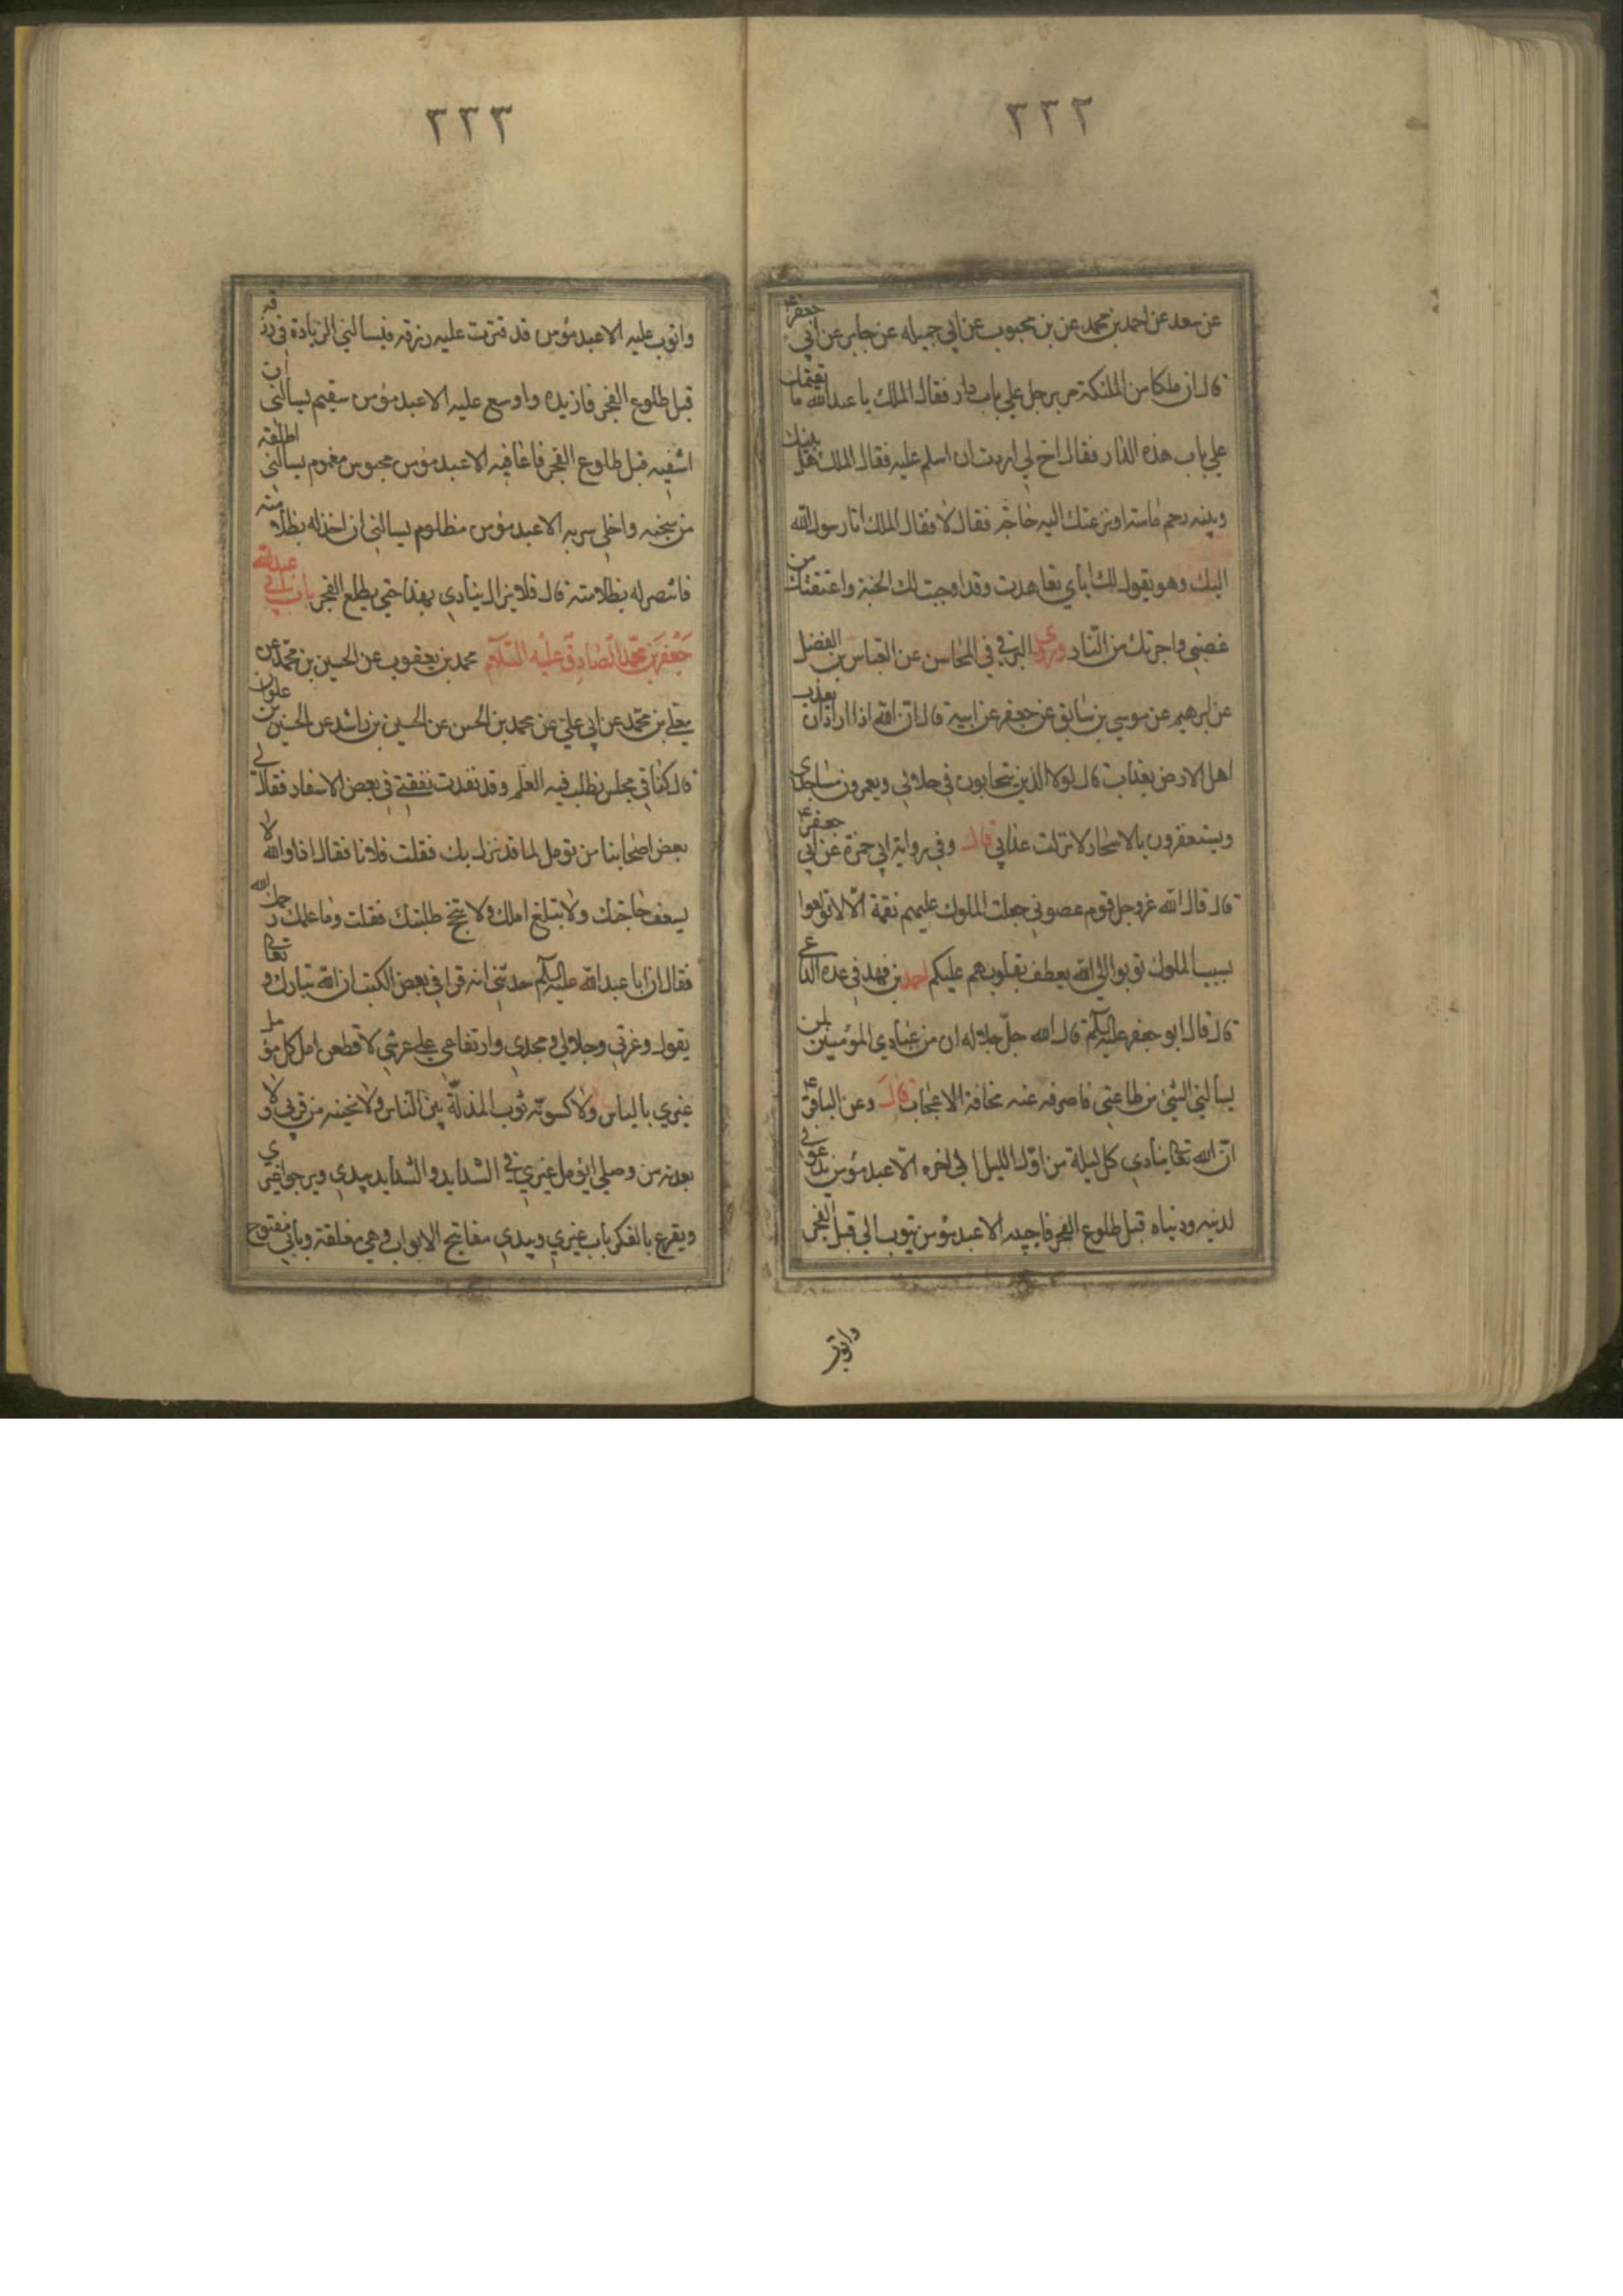 ٢٢٢
عن سعد عن احمد بن محمد عن بن محبوب عن ابي جميله عن جابر عن ابي جعفر ع
قال ان ملكا من الملئكة مر برجل علي باب دار فقال الملك يا عبد الله ما يقيمك
علي باب هذه الدار فقال اخ لي اردت ان اسلم عليه فقال الملك هل بينك
وبينه رحم ماسة او نزعتك اليه حاجة فقال لا فقال الملك انا رسول الله
اليك وهو يقول لك اياي تعاهدت وقد اوجبت لك الجنة واعتقتك من
غضبي واجرتك من النار وروي البرقي في المحاسن عن العباس بن الفضل
عن ابرهيم عن موسي بن سابق عن جعفر عن ابيه قال ان الله اذا اراد ان يعذب
اهل الارض بعذاب قال لولا الذين يتحابون في جلالي ويعمرون مساجدي
ويستغفرون بالاسحار لانزلت عذابي قال وفي رواية ابي حمزة عن ابي جعفر ع
قال قال الله عز وجل قوم عصوني جعلت الملوك عليهم نقمة الا لا تولعوا
بسب الملوك توبوا الي الله يعطف بقلوبهم عليكم احمد بن فهد في عدة الداعي
قال قال ابو جعفر عليه السلم قال الله جل جلاله ان من عبادي المؤمنين لمن
يسالني الشئ من طاعتي فاصرفه عنه مخافة الاعجاب قال وعن الباقر ع
ان الله تعا ينادي كل ليلة من اول الليل الي اخره الا عبد مؤمن يدعوني
لدينه ودنياه قبل طلوع الفجر فاجيبه الا عبد مؤمن يتوب الي قبل الفجر
واتوب
٢٢٣
واتوب عليه الا عبد مؤمن قد قترت عليه رزقه فيسالني الزيادة في رزقه
قبل طلوع الفجر فازيده واوسع عليه الا عبد مؤمن سقيم يسالني ان
اشفيه قبل طلوع الفجر فاعافيه الا عبد مؤمن محبوس مغموم يسالني اطلقه
من سجنه واخلي سربه الا عبد مؤمن مظلوم يسالني ان اخذ له بظلامته
فانتصر له بظلامته قال فلا يزال ينادي بهذا حتي يطلع الفجر باب ابي عبد الله
جعفر بن محمد الصادق عليه السلام محمد بن يعقوب عن الحسين بن محمد عن
معلي بن محمد عن ابي علي عن محمد بن الحسن عن الحسين بن راشد عن الحسين بن علوان
قال كنا في مجلس نطلب فيه العلم وقد نفدت نفقتي في بعض الاسفار فقال لي
بعض اصحابنا من تومل لما قد نزل بك فقلت فلانا فقال اذا والله لا
يسعف حاجتك ولا يبلغ املك ولا ينجح طلبتك فقلت وما علمك رحمك الله
فقال ان ابا عبد الله عليه السلم حدثني انه قرا في بعض الكتب ان الله تبارك وتعالي
يقول وعزتي وجلالي ومجدي وارتفاعي علي عرشي لاقطعن امل كل مؤمل
غيري بالياس ولاكسونه ثوب المذلة بين الناس ولانحينه من قربي ولا
بعدنه من وصلي ايؤمل غيري في الشدايد والشدايد بيدي ويرجو غيري
ويقرع بالفكر باب غيري وبيدي مفاتيح الابواب وهي مغلقة وبابي مفتوح